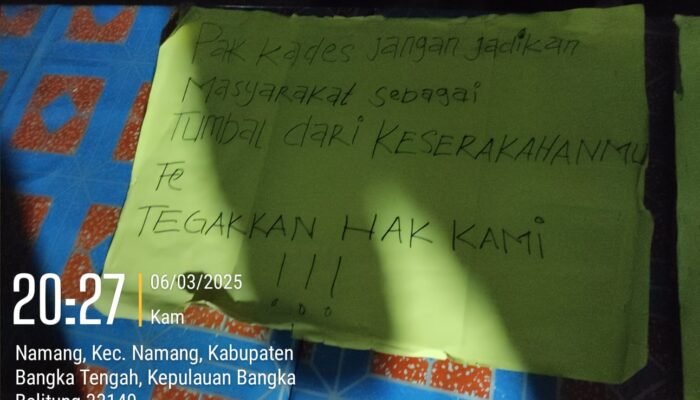 Pak Kades jangan jadikan
Masyarakat sebagai
Tumbal dari KESERAKAHANMU
Te
TEGAKKAN HAK KAMI
!!!
20:27
06/03/2025
Kam
Namang, Kec. Namang, Kabupaten
Bangka Tengah, Kepulauan Bangka
Belitung 33149